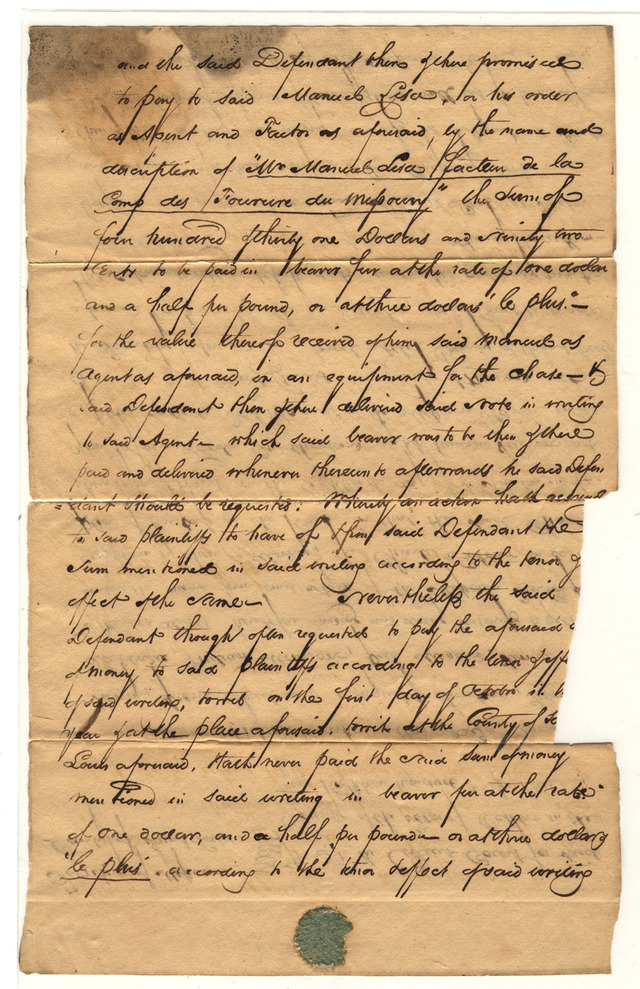 and the said Defendant then & there promised
to pay to said Manuel Lisa, or his order
as Agent and Factor as aforesaid, by the name and
discription of "Mr. Manuel Lisa facteur de la
Comp des Fourrure du Missoury" the Sum of
four hundred & thirty one Dollars and Ninety two
Cents to be paid in beaver fur at the rate of one dollar
and a half per pound, or at three dollars "le plus" –
for the value thereof received of him said Manuel as
Agent as aforesaid, in an equipment for the chase – &
said Defendant then & there delivered said Note in writing
to said Agent – which said beaver was to be then & there
paid and delivered whenever thereunto afterwards he said Defen
= dant should be requested: Whereby an action hath accrued
to said plaintiffs to have of him said Defendant the
sum mentioned in said writing according to the tenor &
effect of the same – Nevertheless the said
Defendant though often requested to pay the aforesaid
of money to said plaintiffs according to the tenor & effe
of said writing, towit on the first day of October in
year & at the place aforesaid, towit at the County of
Louis aforesaid, Hath never paid the said sum of money
mentioned in said writing in beaver fur at the rate
of one dollar, and a half per pound – or at three dollars
"le plus" according to the tenor & effect of said writing